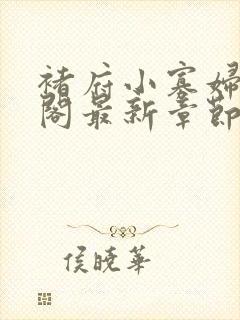 褚府小寡妇
阁最新章节
侯晓华